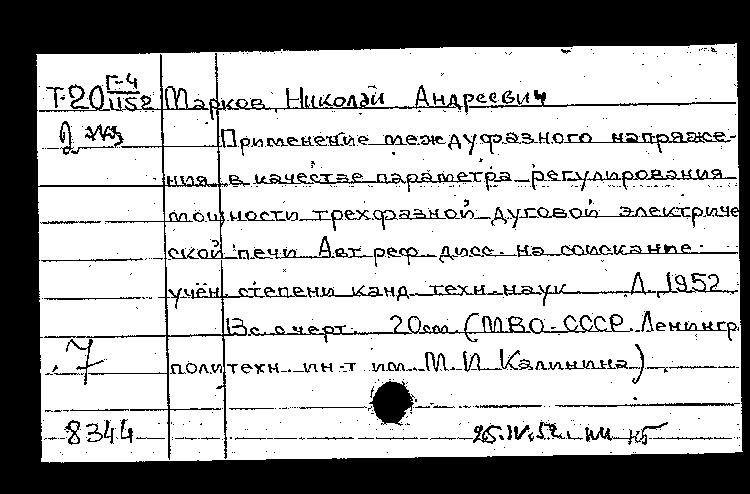 Т-20 Г-4/1152 Марков Николай Андреевич
Применение междуфазного напряже-
ния в качестве параметра регулирования
мощности трехфазной дуговой электриче
ской печи Автореф дисс. на соискание
учён. степени канд. техн. наук Л. 1952
13с. с черт. 20см (МВО-СССР. Ленингр
политехн. ин-т им. М.И Калинина).
7
8344 25.IV.52.